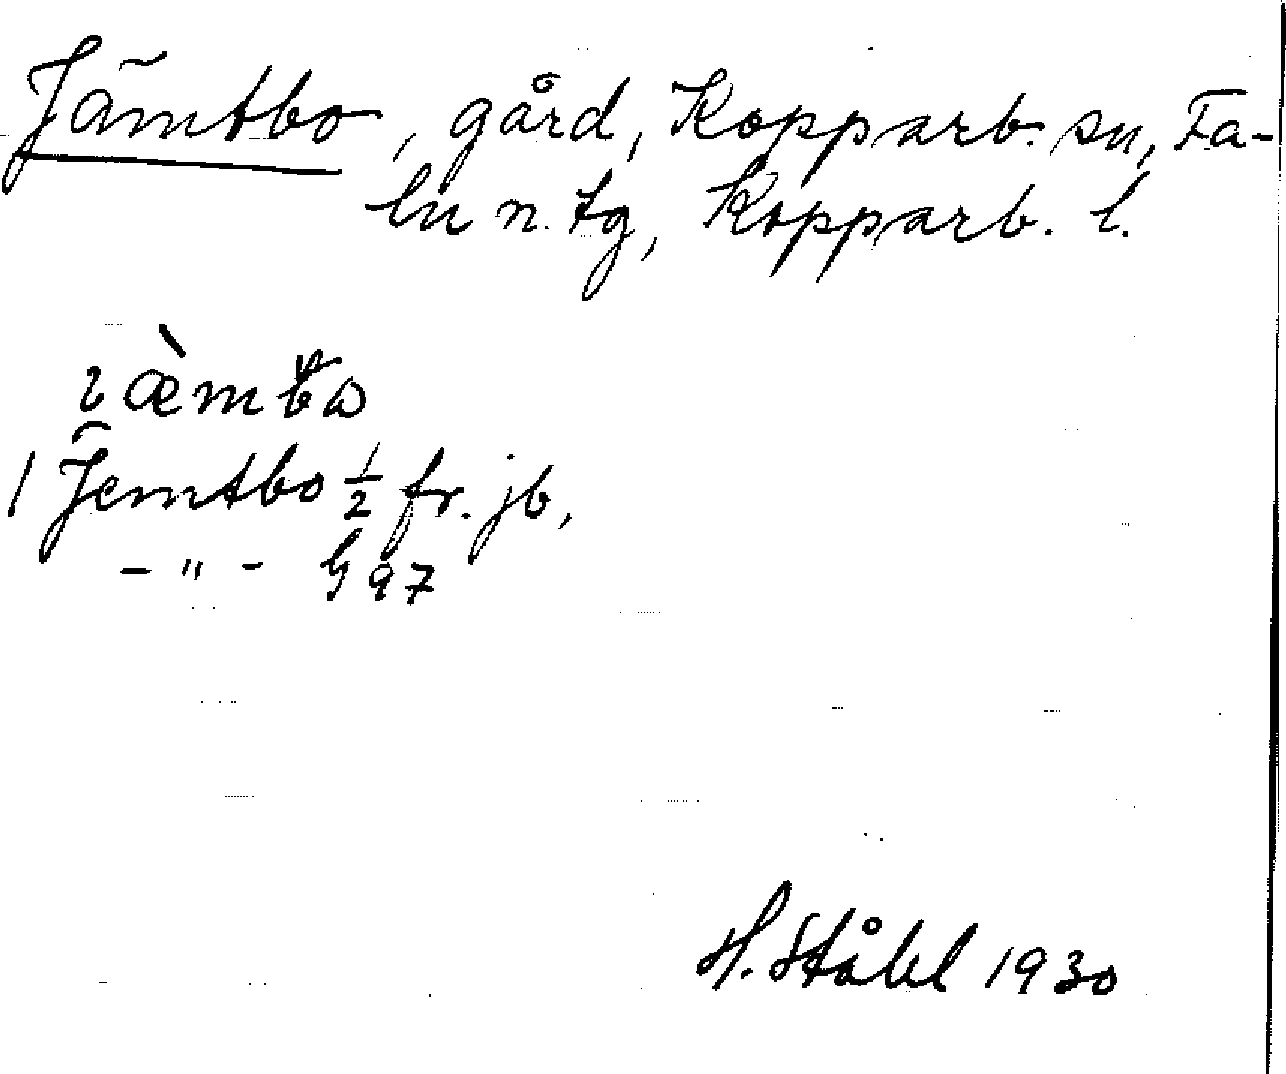 Jämtbo, gård, Kopparb. sn, Fa-
lu n. tg, Kopparb. l.
1 Jemtbo 1/2 fr. jb,
- " - G 97
H. Ståhl 1930